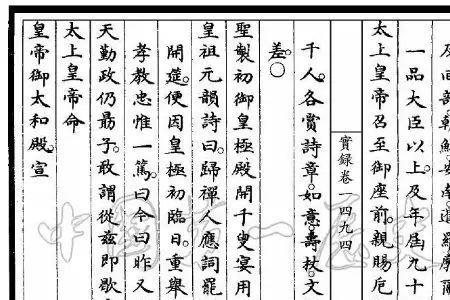 及回部朝鮮安南暹羅廓爾
一品大臣以上。及年屆九十
太上皇帝召至御座前。親賜卮
實錄卷一四九四
千人。各賞詩章。如意。壽杖。文
差。○
聖製初御皇極殿開千叟宴用
皇祖元韻詩曰。歸禪人應詞罷
開筵。便因皇極初臨日。重舉
孝教忠惟一篤。曰今曰昨又
天勤政仍勗子。敢謂從茲即歇
太上皇帝命
皇帝御太和殿。宣
中国第一历史